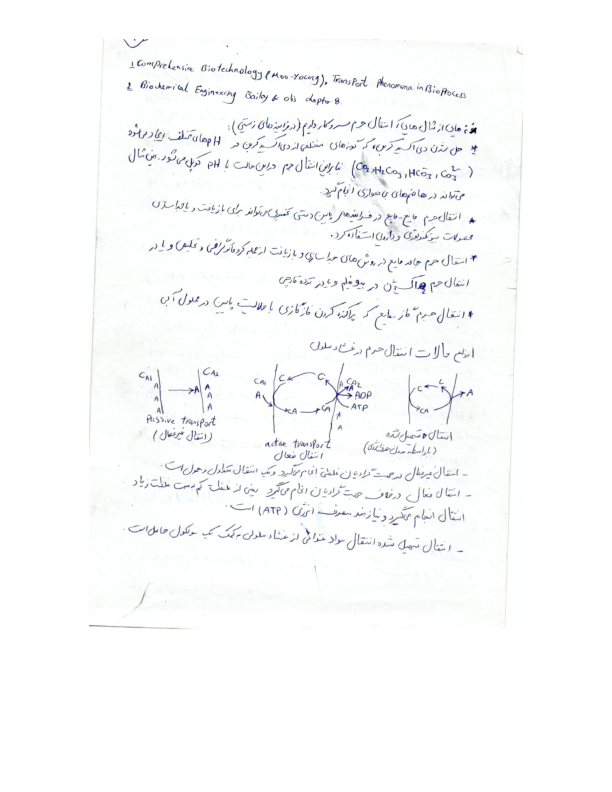 1 Comprehensive Biotechnology (Moo-Young), Transport Phenomena in BioProcess
2 Biochemical Engineering Bailey & olis chapter 8.
هایی از مثال هایی که انتقال جرم سر و کار داریم (در فرایندهای زیستی):
* حل شدن دی اکسید کربن، که گونه‌های مختلفی از دی اکسید کربن در pH های مختلف ایجاد می‌شود
(CO2, H2CO3, HCO3-, CO3 2-) بنابراین انتقال جرم در این حالت با pH کوپل می‌شود. این مثال
می‌تواند در هاضم‌های بی‌هوازی انجام گیرد.
* انتقال جرم مایع-مایع در فرایندهای پایین دستی تخمیری می‌تواند برای بازیافت و یا جداسازی
محصولات بیوتکنولوژی و دارویی استفاده کرد.
* انتقال جرم جامد مایع در روش‌های جداسازی و بازیافت از جمله کروماتوگرافی و تعلیق و یا در
انتقال جرم اکسیژن در بیوفیلم و یا در توده قارچی
* انتقال جرم گاز-مایع که پراکنده کردن فاز گازی با حلالیت پایین در محلول آبی
انواع حالات انتقال جرم در غشاء سلولی
CA1 CA2
A A A A A A A
Passive transport
(انتقال غیرفعال)
CA1 C C CA2
A CA CA A ADP ATP
active transport
انتقال فعال
C C A
CA
انتقال تسهیل شده
- انتقال غیرفعال در جهت گرادیان غلظتی انجام می‌گیرد و یک انتقال متداول و معمول است.
- انتقال فعال در خلاف جهت گرادیان انجام می‌گیرد یعنی از غلظت کم به سمت غلظت زیاد
انتقال انجام می‌گیرد و نیازمند مصرف انرژی (ATP) است.
- انتقال تسهیل شده انتقال مواد غذایی از غشاء سلولی به کمک یک مولکول حامل است.